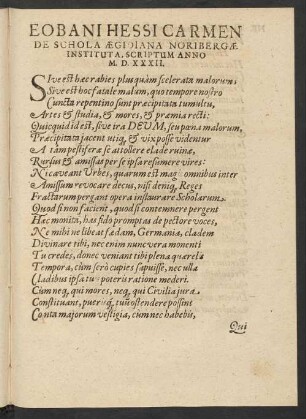 EOBANI HESSI CARMEN
DE SCHOLA ÆGIDIANA NORIBERGÆ
INSTITUTA, SCRIPTUM ANNO
M. D. XXXII.
SIve est hæc rabies plus quàm scelerata malorum,
Sive est hoc fatale malum, quo tempore nostro
Cuncta repentino sunt præcipitata tumultu,
Artes & studia, & mores, & præmia recti:
Quicquid id est, sive ira DEUM, seu pœna malorum,
Præcipitata jacent utiq́, & vix posse videntur
A tàm pestifera se attollere clade ruinæ,
Rursus & amissas per se ipsa resumere vires:
Ni caveant Urbes, quarum est mag omnibus inter
Amissum revocare decus, nisi deniq́, Reges
Fractarum pergant opera instaurare Scholarum.
Quod si non facient, quod si contemnere pergent
Hac monita, has fido promptas de pectore voces,
Ne mihi ne libeat fœdam, Germania, cladem
Divinare tibi, nec enim nunc vera monenti
Tu credes, donec veniant tibi plena querelæ
Tempora, cùm serò cupies sapuisse, nec ulla
Cladibus ipsa tuis poteris ratione mederi.
Cùm neq́, qui mores, neq́, qui Civilia jura
Constituant, puerisq́, tuis ostendere possint
Conta majorum vestigia, cùm nec habebis,
Qui